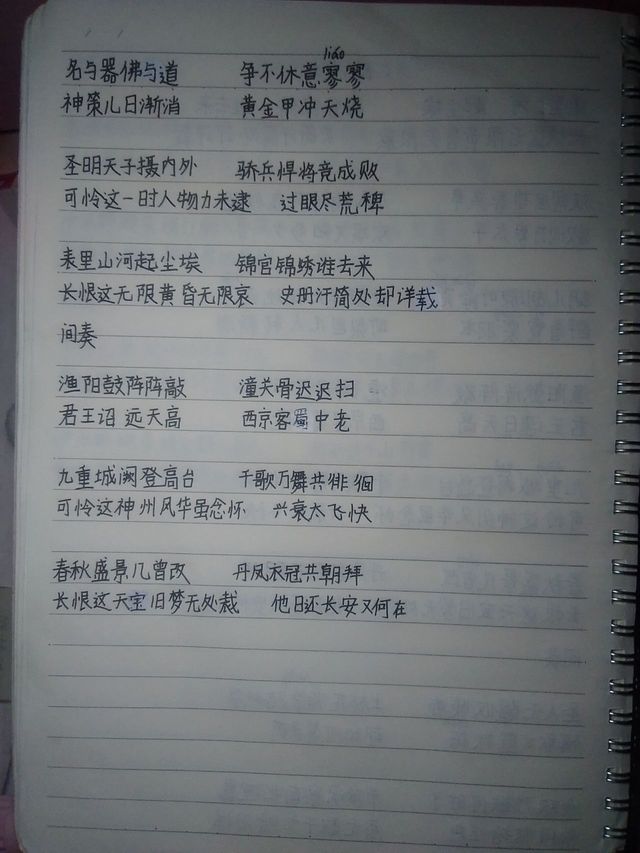 liáo
名与器佛与道 争不休意寥寥
神策儿日渐消 黄金甲冲天烧
圣明天子摄内外 骄兵悍将竞成败
可怜这一时人物力未逮 过眼尽荒稗
表里山河起尘埃 锦官锦绣谁去来
长恨这无限黄昏无限哀 史册汗简处却详载
间奏
渔阳鼓阵阵敲 潼关骨迟迟扫
君王诏远天高 西京客蜀中老
九重城阙登高台 千歌万舞共徘徊
可怜这神州风华虽念怀 兴衰太飞快
春秋盛景几曾改 丹凤衣冠共朝拜
长恨这天宝旧梦无处裁 他日还长安又何在